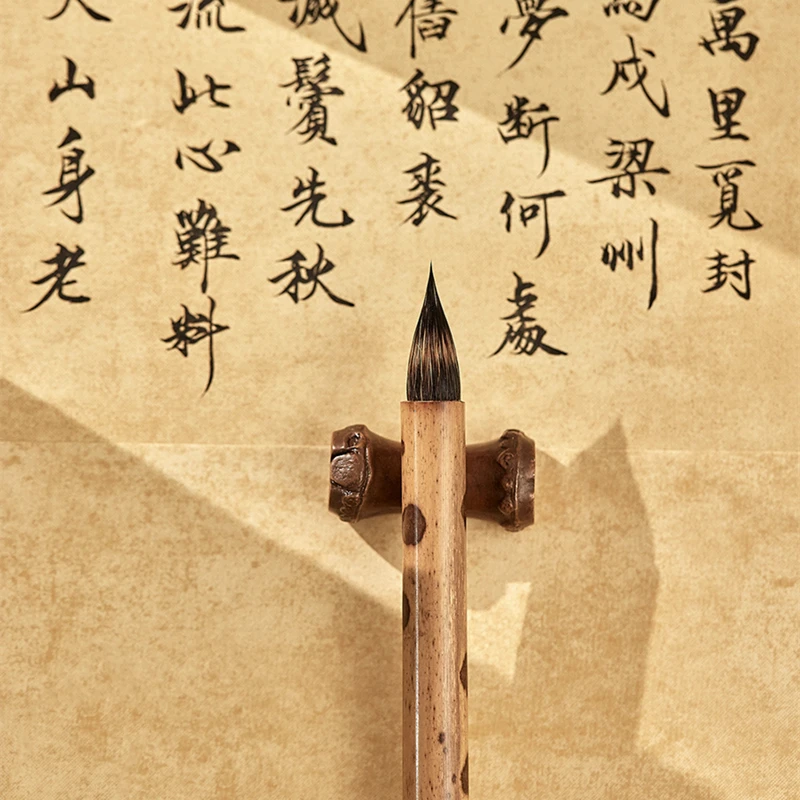 萬里覓封
馬戍梁州
夢断何處
舊貂裘
滅鬢先秋
流此心難料
天山身老